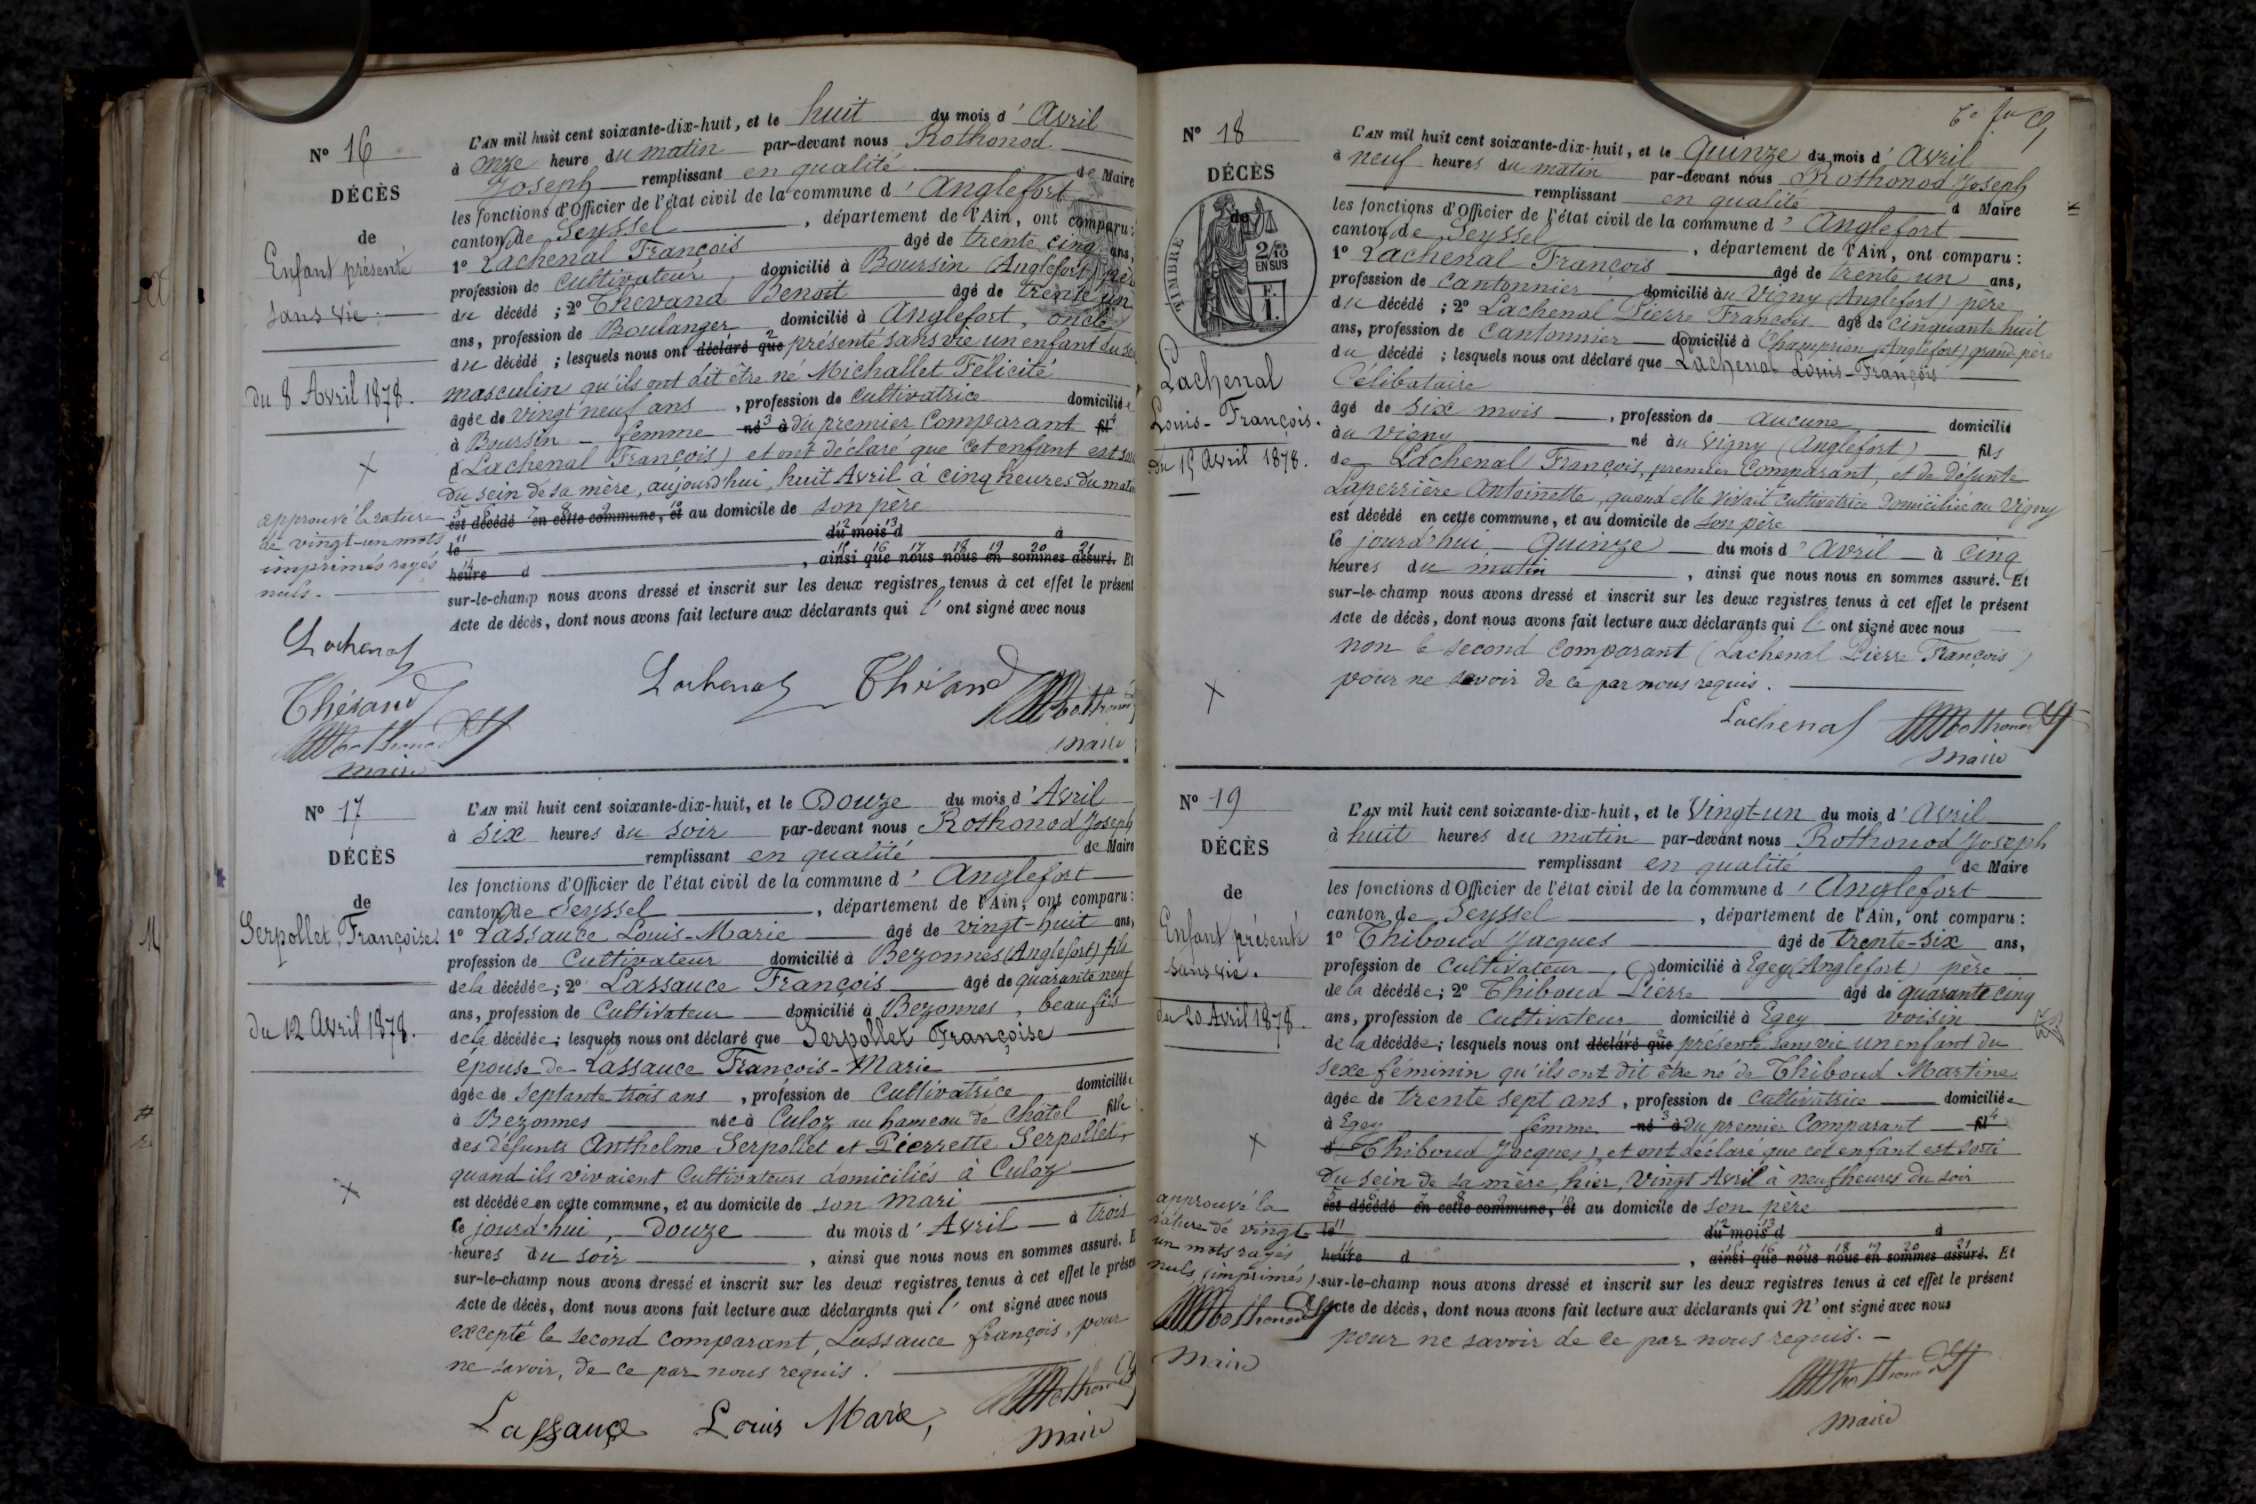 N° 16
DÉCÈS
de
Enfant présenté
sans vie.
du 8 Avril 1878.
approuvé la rature
de vingt-un mots
imprimés rayés
nuls.
Lachenal
Thévand
Rothonod
maire
L'AN mil huit cent soixante-dix-huit, et le huit du mois d' Avril
à onze heure du matin par-devant nous Rothonod
Joseph remplissant en qualité de Maire
les fonctions d'Officier de l'état civil de la commune d' Anglefort
canton de Seyssel, département de l'Ain, ont comparu:
1° Lachenal François âgé de trente cinq ans,
profession de Cultivateur domicilié à Boursin (Anglefort) père
du décédé ; 2° Thévand Benoit âgé de trente un
ans, profession de Boulanger domicilié à Anglefort, oncle
du décédé ; lesquels nous ont déclaré que présenté sans vie un enfant du sexe
masculin qu'ils ont dit être né Michallet Félicité
âgée de vingt neuf ans, profession de Cultivatrice domiciliée
à Boursin - femme né à du premier Comparant fil
d (Lachenal François) et ont déclaré que cet enfant est sorti
du sein de sa mère, aujourd'hui, huit Avril à cinq heures du matin
est décédé en cette commune, et au domicile de son père
le du mois d à
heure d , ainsi que nous nous en sommes assuré. Et
sur-le-champ nous avons dressé et inscrit sur les deux registres tenus à cet effet le présent
Acte de décès, dont nous avons fait lecture aux déclarants qui l' ont signé avec nous
Lachenal Thévand Rothonod
maire
N° 17
DÉCÈS
de
Serpollet Françoise.
du 12 Avril 1878.
L'AN mil huit cent soixante-dix-huit, et le Douze du mois d' Avril
à six heures du soir par-devant nous Rothonod Joseph
remplissant en qualité de Maire
les fonctions d'Officier de l'état civil de la commune d' Anglefort
canton de Seyssel, département de l'Ain, ont comparu:
1° Lassauce Louis-Marie âgé de vingt-huit ans,
profession de Cultivateur domicilié à Bezonnes (Anglefort) fils
de la décédée; 2° Lassauce François âgé de quarante neuf
ans, profession de Cultivateur domicilié à Bezonnes, beau fils
de la décédée; lesquels nous ont déclaré que Serpollet Françoise
épouse de Lassauce François-Marie
âgée de septante trois ans, profession de Cultivatrice domiciliée
à Bezonnes née à Culoz au hameau de Châtel fille
des défunts Anthelme Serpollet et Pierrette Serpollet,
quand ils vivaient Cultivateurs domiciliés à Culoz
est décédée en cette commune, et au domicile de son mari
le jourd'hui, Douze du mois d' Avril à trois
heures du soir, ainsi que nous nous en sommes assuré. E
sur-le-champ nous avons dressé et inscrit sur les deux registres tenus à cet effet le présent
Acte de décès, dont nous avons fait lecture aux déclarants qui l' ont signé avec nous
excepté le second comparant, Lassauce françois, pour
ne savoir, de ce par nous requis.
Lassauce Louis Marie, Rothonod
maire
N° 18
DÉCÈS
de
TIMBRE
2/10
EN SUS
F.
1.
Lachenal
Louis-François.
du 15 Avril 1878.
L'AN mil huit cent soixante-dix-huit, et le Quinze du mois d' Avril
à neuf heures du matin par-devant nous Rothonod Joseph
remplissant en qualité d Maire
les fonctions d'Officier de l'état civil de la commune d' Anglefort
canton de Seyssel, département de l'Ain, ont comparu:
1° Lachenal François âgé de trente un ans,
profession de Cantonnier domicilié au Vigny (Anglefort) père
du décédé ; 2° Lachenal Pierre François âgé de cinquante huit
ans, profession de Cantonnier domicilié à Champrion (Anglefort) grand père
du décédé ; lesquels nous ont déclaré que Lachenal Louis-François
Célibataire
âgé de six mois, profession de aucune domicilié
au Vigny né au Vigny (Anglefort) fils
de Lachenal François, premier Comparant, et de défunte
Laperrière Antoinette, quand elle vivait Cultivatrice domiciliée au Vigny
est décédé en cette commune, et au domicile de son père
le jourd'hui, Quinze du mois d' Avril à cinq
heures du matin, ainsi que nous nous en sommes assuré. Et
sur-le-champ nous avons dressé et inscrit sur les deux registres tenus à cet effet le présent
Acte de décès, dont nous avons fait lecture aux déclarants qui l' ont signé avec nous
non le second comparant (Lachenal Pierre François)
pour ne savoir de ce par nous requis.
Lachenal Rothonod
maire
N° 19
DÉCÈS
de
Enfant présenté
sans vie.
du 20 Avril 1878.
approuvé la
rature de vingt
un mots rayés
nuls (imprimés).
Rothonod
maire
L'AN mil huit cent soixante-dix-huit, et le Vingt-un du mois d' Avril
à huit heures du matin par-devant nous Rothonod Joseph
remplissant en qualité de Maire
les fonctions d'Officier de l'état civil de la commune d' Anglefort
canton de Seyssel, département de l'Ain, ont comparu:
1° Thiboud Jacques âgé de trente-six ans,
profession de Cultivateur, domicilié à Egey (Anglefort) père
de la décédée; 2° Thiboud Pierre âgé de quarante cinq
ans, profession de Cultivateur domicilié à Egey voisin
de la décédée; lesquels nous ont déclaré que présenté sans vie un enfant du
sexe féminin qu'ils ont dit être né de Thiboud Martine
âgée de trente sept ans, profession de Cultivatrice domiciliée
à Egey femme né à du premier Comparant fil
d Thiboud Jacques) et ont déclaré que cet enfant est sorti
du sein de sa mère, hier, vingt Avril à neuf heures du soir
est décédé en cette commune, et au domicile de son père
le du mois d à
heure d , ainsi que nous nous en sommes assuré. Et
sur-le-champ nous avons dressé et inscrit sur les deux registres tenus à cet effet le présent
Acte de décès, dont nous avons fait lecture aux déclarants qui n' ont signé avec nous
pour ne savoir de ce par nous requis.
Rothonod
maire